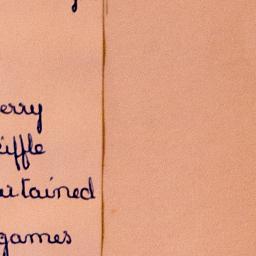 y
erry
iffle
ertained
games